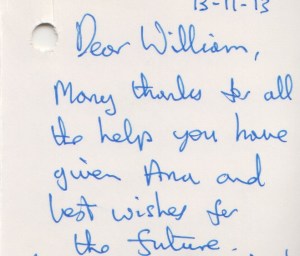 13-11-13
Dear William,
Many thanks for all
the help you have
given Ana and
best wishes for
the future.